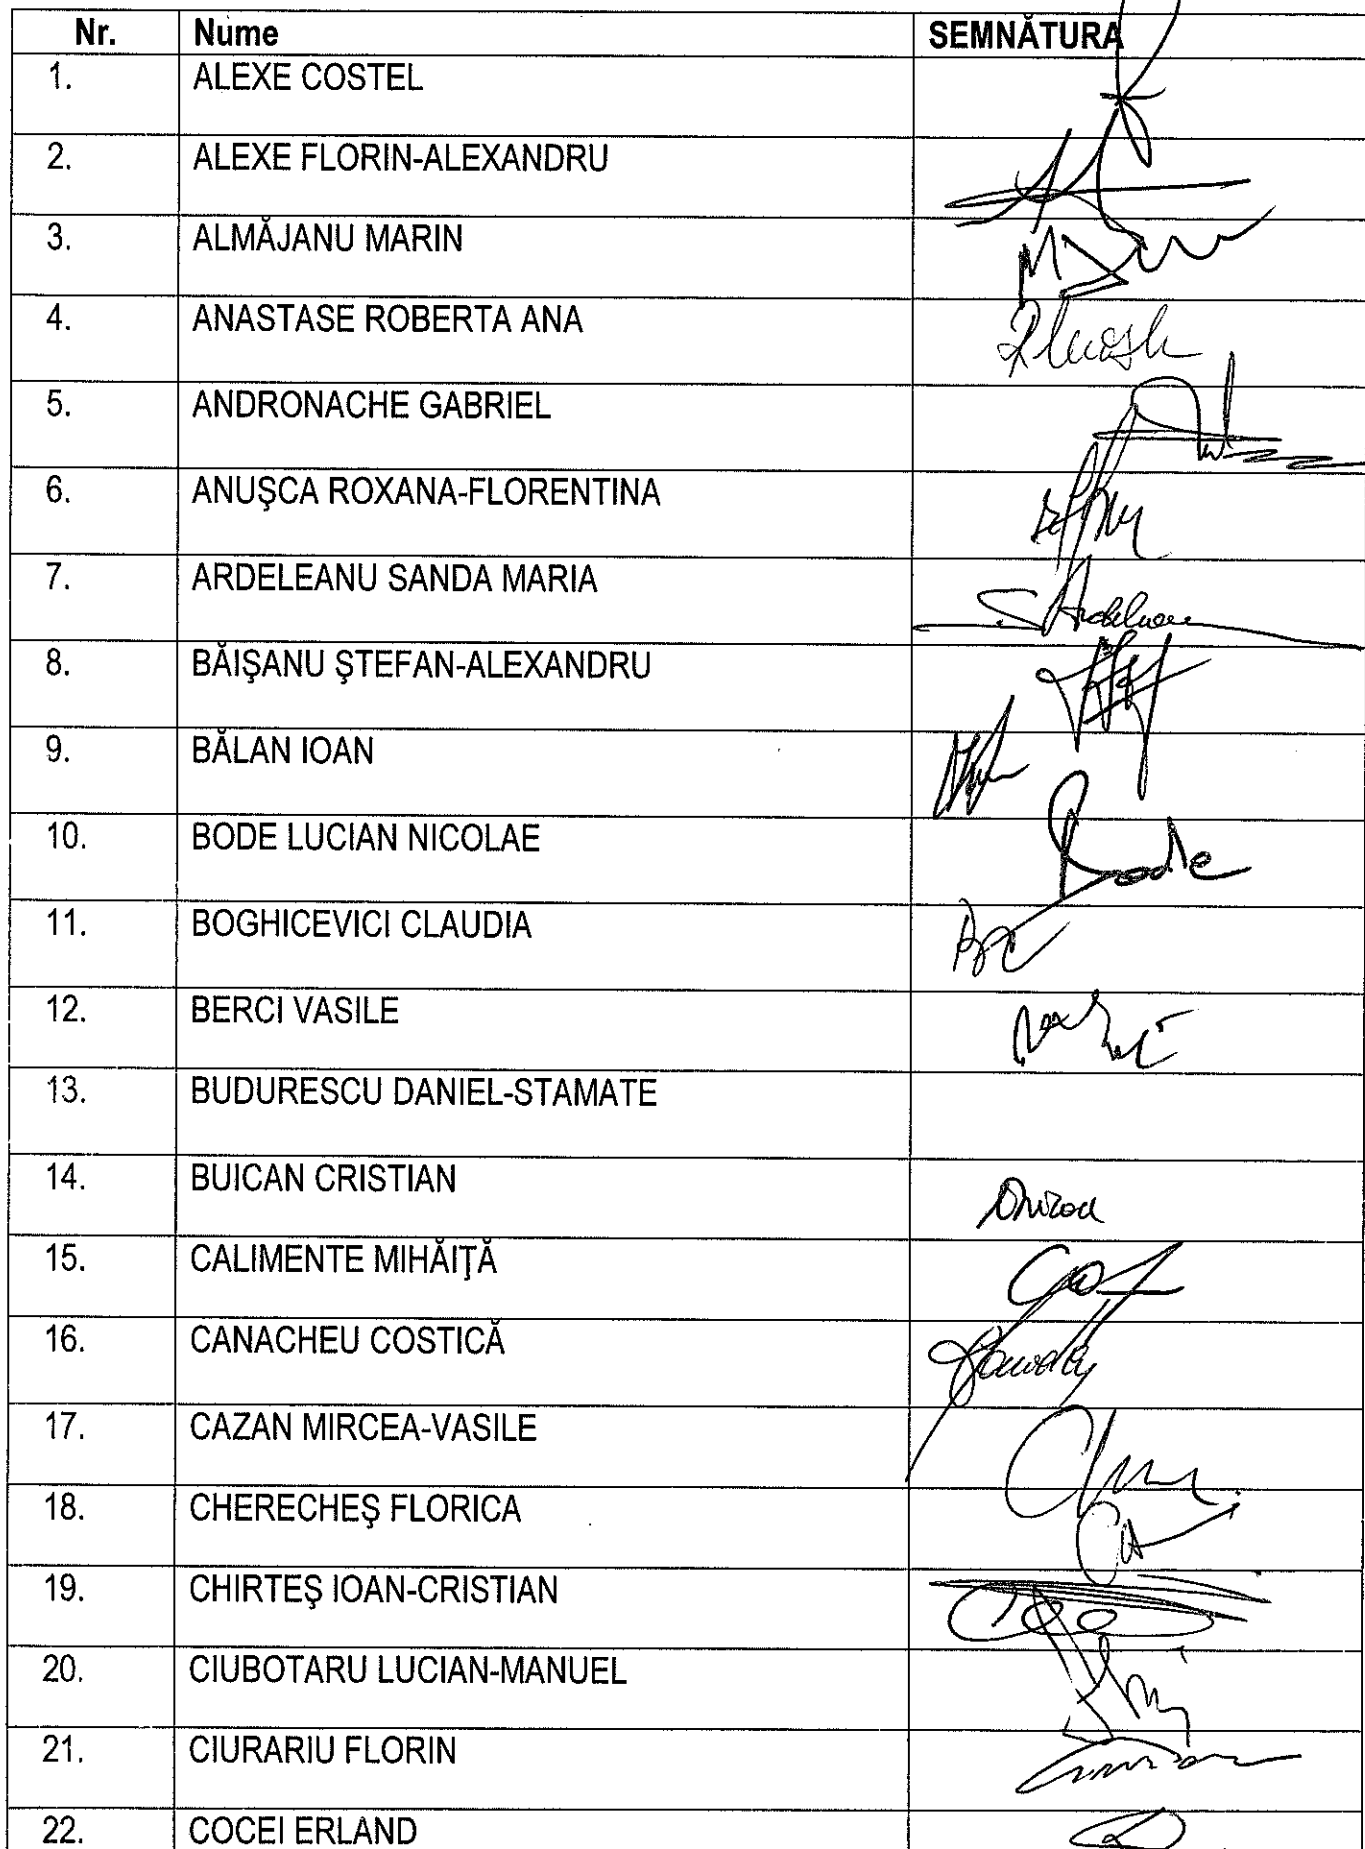 Nr. Nume SEMNĂTURA
1. ALEXE COSTEL
2. ALEXE FLORIN-ALEXANDRU
3. ALMĂJANU MARIN
4. ANASTASE ROBERTA ANA
5. ANDRONACHE GABRIEL
6. ANUŞCA ROXANA-FLORENTINA
7. ARDELEANU SANDA MARIA
8. BĂIŞANU ŞTEFAN-ALEXANDRU
9. BĂLAN IOAN
10. BODE LUCIAN NICOLAE Bode
11. BOGHICEVICI CLAUDIA
12. BERCI VASILE
13. BUDURESCU DANIEL-STAMATE
14. BUICAN CRISTIAN
15. CALIMENTE MIHĂIŢĂ
16. CANACHEU COSTICĂ
17. CAZAN MIRCEA-VASILE
18. CHERECHEŞ FLORICA
19. CHIRTEŞ IOAN-CRISTIAN
20. CIUBOTARU LUCIAN-MANUEL
21. CIURARIU FLORIN
22. COCEI ERLAND